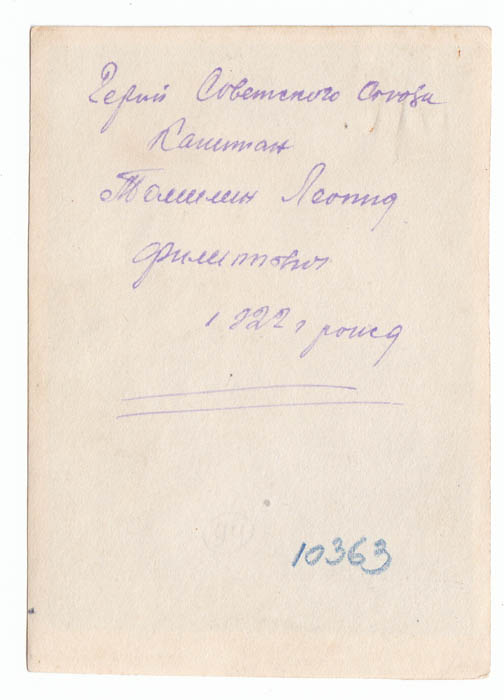 Герой Советского Союза
Капитан
Томилин Леонид
Филиппович
1922 г рожд
10363